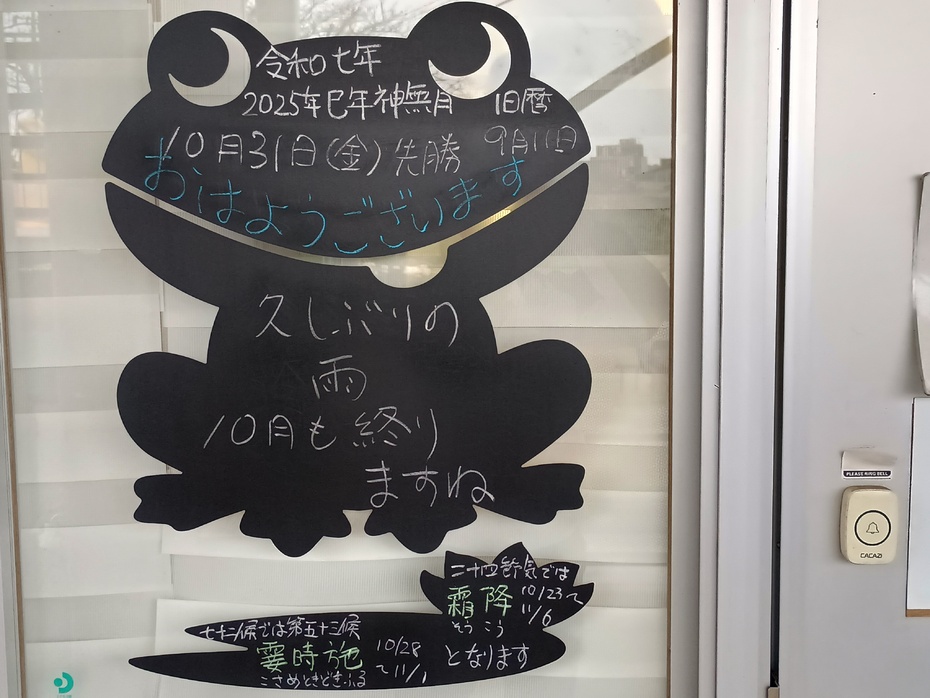 令和七年
2025年巳年神無月 旧暦
10月31日(金)先勝 9月11日
おはようございます
久しぶりの
雨
10月も終り
ますね
二十四節気では
霜降 10/23〜11/6
そうこう
となります
七十二候では第五十三候
霎時施 10/28〜11/1
こさめときどきふる
PLEASE RING BELL
CACAZI